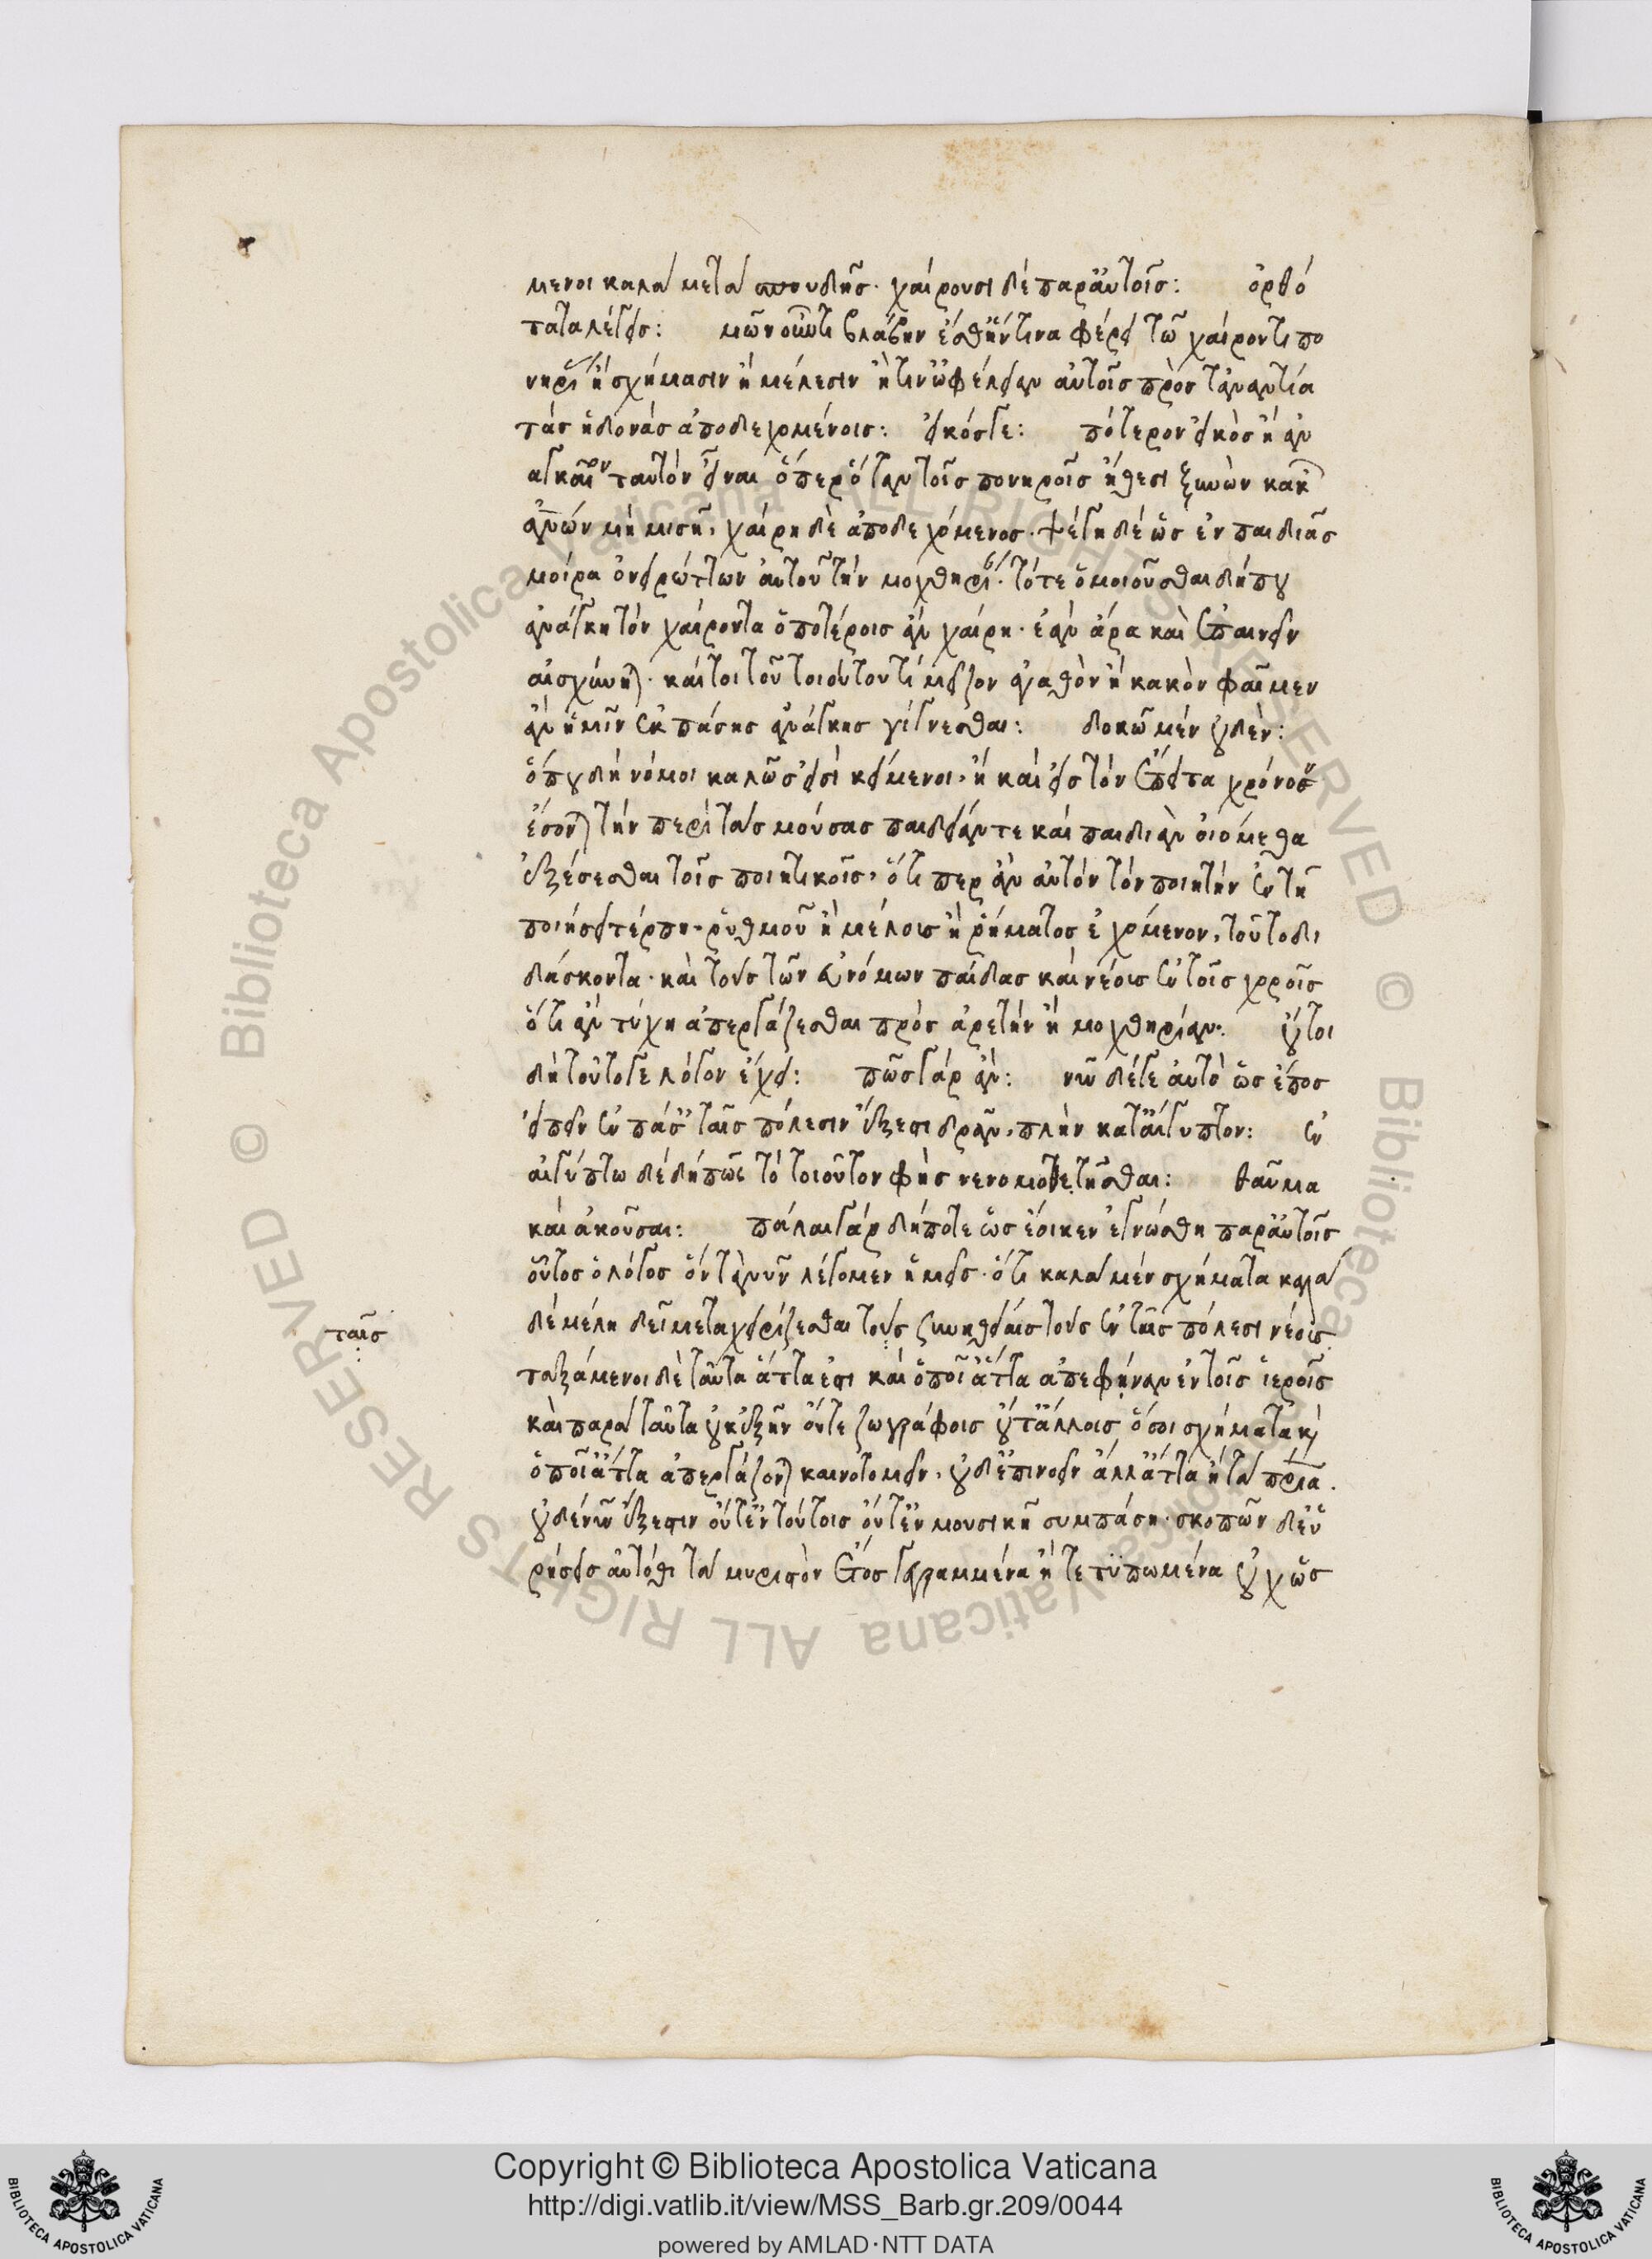 μενοι καλὰ μετὰ σπουδῆς· χαίρουσι δὲ παρ' αὐτοῖς: ὀρθό
τατα λέγεις: μῶν οὖν τι βλάβην ἔσθ' ἥντινα φέρει τῶ χαίροντι πο
νηρίας ἢ σχήμασιν ἢ μέλεσιν ἤ τιν' ὠφέλειαν αὐτοῖς πρὸς τἀναντία
τὰς ἡδονὰς ἀποδεχομένοις: εἰκός γε: πότερον εἰκὸς ἢ ἀν
αγκαῖον ταυτὸν εἶναι ὅπερ ὅταν τοῖς πονηροῖς ἤθεσι ξυνὼν κακῶν
ἀνθρώπων μὴ μισῆ, χαίρη δὲ ἀποδεχόμενος· ψέγη δὲ ὡς ἐν παιδιᾶς
μοίρα ὀνειρώττων αὐτοῦ τὴν μοχθηρίαν· τότε ὁμοιοῦσθαι δήπου
ἀνάγκη τὸν χαίροντα ὁποτέροις ἂν χαίρη· ἐὰν ἄρα καὶ ἐπαινεῖν
αἰσχύνηται· καίτοι τοῦ τοιούτου τί μεῖζον ἀγαθὸν ἢ κακὸν φαῖμεν
ἂν ἡμῖν ἐκ πάσης ἀνάγκης γίγνεσθαι: δοκῶ μὲν οὐδέν:
ὅπου δὴ νόμοι καλῶς εἰσὶ κείμενοι, ἢ καὶ εἰς τὸν ἔπειτα χρόνον
ἔσονται τὴν περὶ τὰς μούσας παιδείαν τε καὶ παιδιὰν οἰόμεθα
ἐξέσεσθαι τοῖς ποιητικοῖς, ὅτι περ ἂν αὐτὸν τὸν ποιητὴν ἐν τῆ
ποιήσει τέρπη, ῥυθμοῦ ἢ μέλους ἢ ῥήματος ἐχόμενον, τοῦτο δι
δάσκοντα· καὶ τοὺς τῶν εὐνόμων παῖδας καὶ νέους ἐν τοῖς χοροῖς
ὅτι ἂν τύχη ἀπεργάζεσθαι πρὸς ἀρετὴν ἢ μοχθηρίαν: οὔτοι
δὴ τοῦτό γε λόγον ἔχει: πῶς γὰρ ἄν: νῦν δέ γε αὐτὸ ὡς ἔπος
εἰπεῖν ἐν πάσαις ταῖς πόλεσιν ἔξεστι δρᾶν, πλὴν κατ' αἴγυπτον: ἐν
αἰγύπτω δὲ δὴ πῶς τὸ τοιοῦτον φὴς νενομοθετῆσθαι: θαῦμα
καὶ ἀκοῦσαι: πάλαι γὰρ δήποτε ὡς ἔοικεν ἐγνώσθη παρ' αὐτοῖς
οὗτος ὁ λόγος ὃν τανῦν λέγομεν ἡμεῖς· ὅτι καλὰ μὲν σχήματα καλὰ
δὲ μέλη δεῖ μεταχειρίζεσθαι τοὺς συνηθείαις τοὺς ἐν ταῖς πόλεσι νέους
ταῖς
ταξάμενοι δὲ ταῦτα ἅττα ἐστὶ καὶ ὁποῖ' ἄττα ἀπέφηναν ἐν τοῖς ἱεροῖς
καὶ παρὰ ταῦτα οὐκ ἐξῆν οὔτε ζωγράφοις οὔτ' ἄλλοις ὅσοι σχήματα καὶ
ὁποῖ' ἄττα ἀπεργάζονται καινοτομεῖν, οὐδ' ἐπινοεῖν ἄλλ' ἄττα ἢ τὰ πάτρια.
οὐδὲ νῦν ἔξεστιν οὔτ' ἐν τούτοις οὔτ' ἐν μουσικῆ συμπάση· σκοπῶν δ' εὑ
ρήσεις αὐτόθι τὰ μυριοστὸν ἔτος γεγραμμένα ἢ τετυπωμένα οὐχ ὡς
Copyright © Biblioteca Apostolica Vaticana
http://digi.vatlib.it/view/MSS_Barb.gr.209/0044
powered by AMLAD·NTT DATA